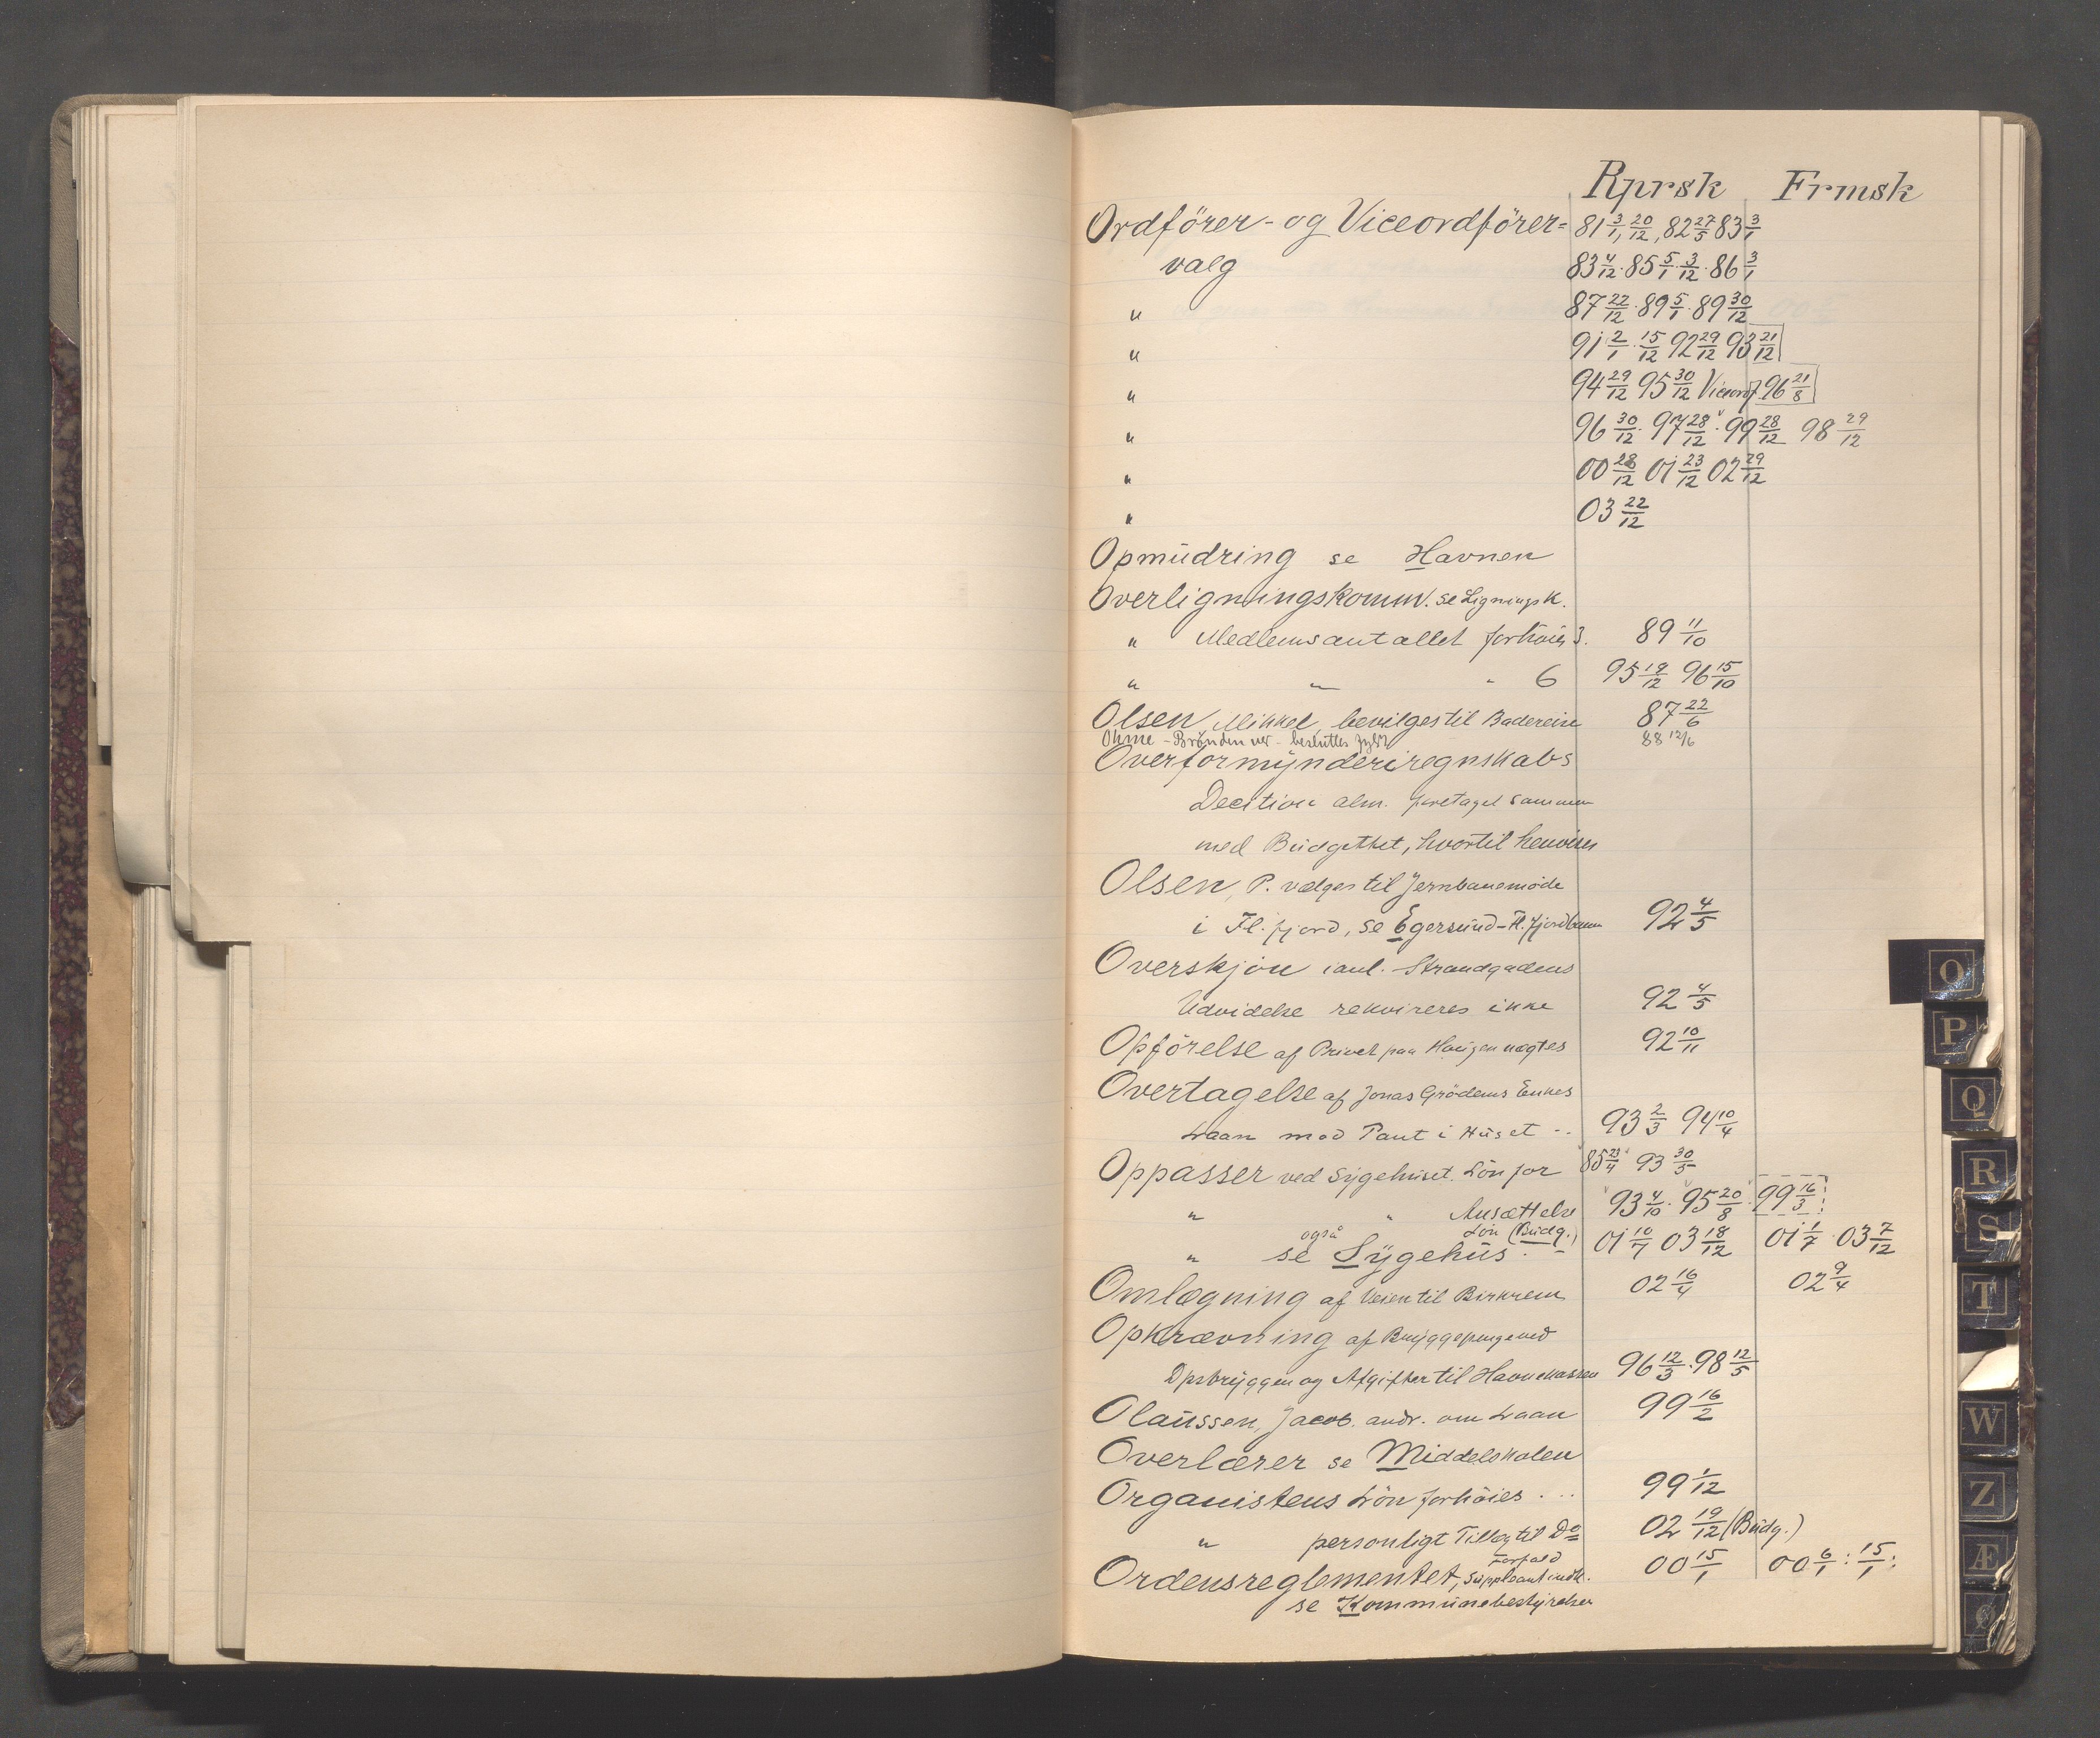 Rprsk Frmsk
Ordförer- og Viceordförer= 81 3/1, 20/12, 82 27/5 83 3/1
valg 83 4/12 · 85 5/1 · 3/12 · 86 3/1
" 87 22/12 · 89 5/1 · 89 30/12
" 91 2/1 · 15/12 92 29/12 93 21/12
" 94 29/12 95 30/12 Viceordf. 96 21/8
" 96 30/12 · 97 28/12 · 99 28/12 98 29/12
" 00 28/12 01 23/12 02 29/12
" 03 22/12
Opmudring se Havnen
Overligningskomm. se Lignings K.
" Medlemsantallet forhöies 3. 89 11/10
" " " 6 95 19/12 96 15/10
Olsen, Mikkel, bevilges til Badereise 87 22/6
Ohme - Brönden ver - besluttes fyldt 88 12/6
Overformynderiregnskabs
Decition alm. foretaget sammen
med Budgettet, hvortil henvises
Olsen, P. vælges til Jernbanemöde
i Fl. fjord, se Egersund-Fl. fjordbanen 92 4/5
Overskjön i anl. Strandgadens
Udvidelse rekvireres ikke 92 4/5
Opförelse af Privet paa Haugen nægtes 92 10/11
Overtagelse af Jonas Grödems Enkes
Laan mod Pant i Huset .. 93 2/3 94 10/4
Oppasser ved Sygehuset. Lön for 85 23/4 93 30/5
" " Ansættelse 93 4/10 · 95 20/8 · 99 16/3
også Lön (Budg.)
" se Sygehus . 01 10/7 03 18/12 01 1/7 03 7/12
Omlægning af Veien til Birkrem 02 16/4 02 9/4
Opkrævning af Bryggepenge ved
Dpsbryggen og Afgifter til Havnekassen 96 12/3 · 98 12/5
Olaussen, Jacob. andr. om Laan 99 16/2
Overlærer se Middelskolen
Organistens Lön forhöies . .. 99 1/12
" personligt Tillæg til Do 02 19/12 (Budg.)
Forfald
Ordensreglementet, Suppleant indk. 00 15/1 00 6/1 : 15/1 :
se Kommunebestyrelsen
O
P
Q
R
S
T
W
Z
Æ
Ø